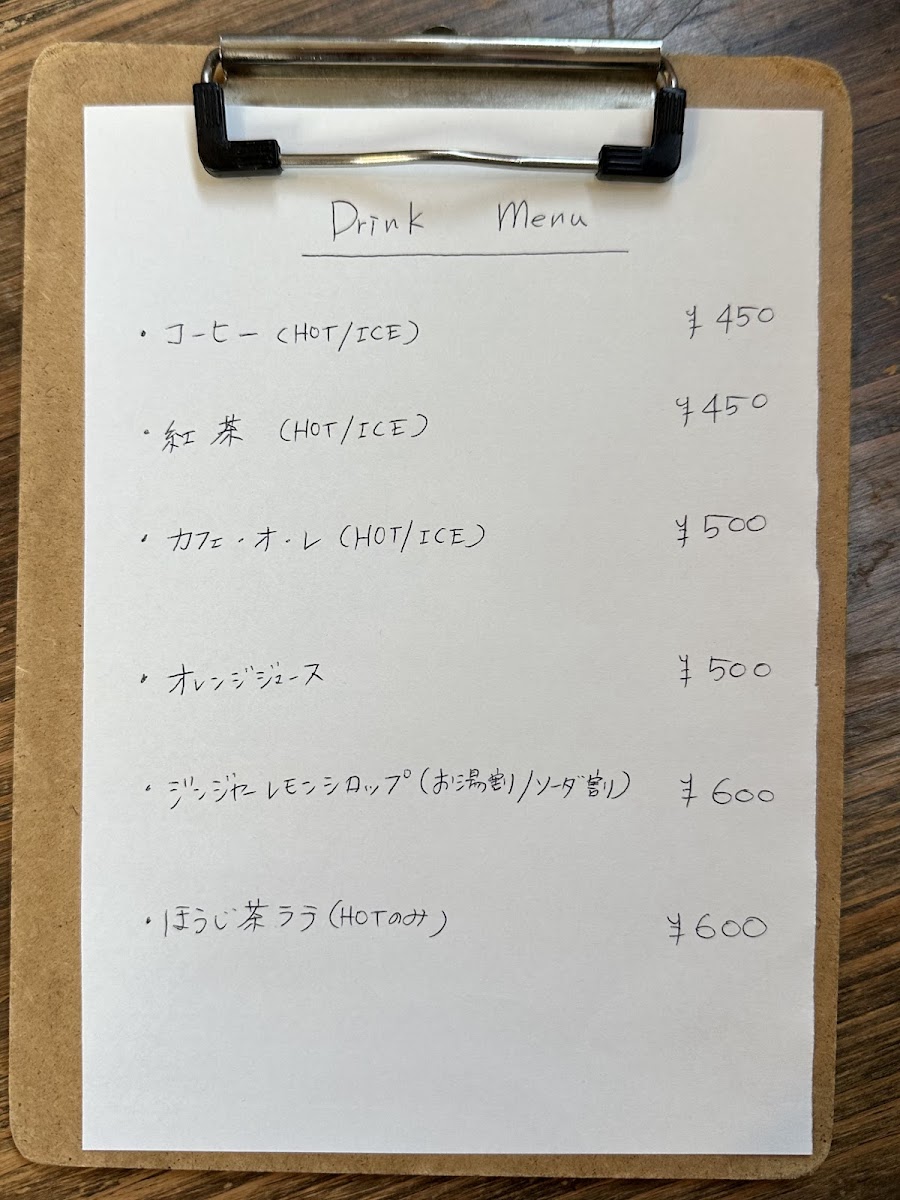 Drink Menu
・コーヒー (HOT/ICE) ¥450
・紅茶 (HOT/ICE) ¥450
・カフェ・オ・レ (HOT/ICE) ¥500
・オレンジジュース ¥500
・ジンジャーレモンシロップ(お湯割/ソーダ割) ¥600
・ほうじ茶ララ(HOTのみ) ¥600